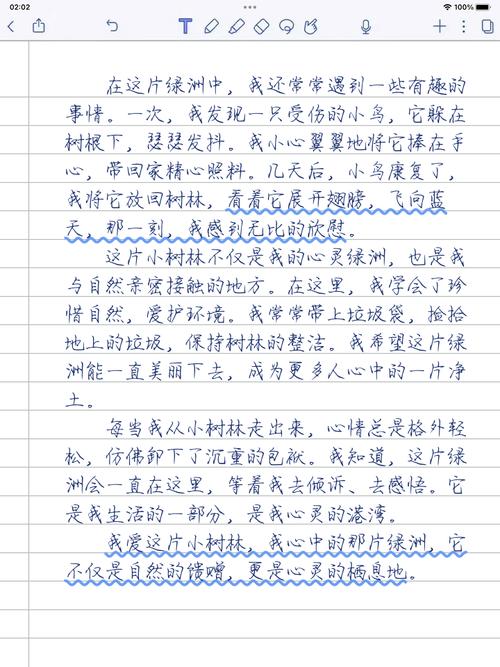 02:02
100%
T
在这片绿洲中，我还常常遇到一些有趣的
事情。一次，我发现一只受伤的小鸟，它躲在
树根下，瑟瑟发抖。我小心翼翼地将它捧在手
心，带回家精心照料。几天后，小鸟康复了，
我将它放回树林，看着它展开翅膀，飞向蓝
天，那一刻，我感到无比的欣慰。
这片小树林不仅是我的心灵绿洲，也是我
与自然亲密接触的地方。在这里，我学会了珍
惜自然，爱护环境。我常常带上垃圾袋，捡拾
地上的垃圾，保持树林的整洁。我希望这片绿
洲能一直美丽下去，成为更多人心中的一片净
土。
每当我从小树林走出来，心情总是格外轻
松，仿佛卸下了沉重的包袱。我知道，这片绿
洲会一直在这里，等着我去倾诉、去感悟。它
是我生活的一部分，是我心灵的港湾。
我爱这片小树林，我心中的那片绿洲，它
不仅是自然的馈赠，更是心灵的栖息地。